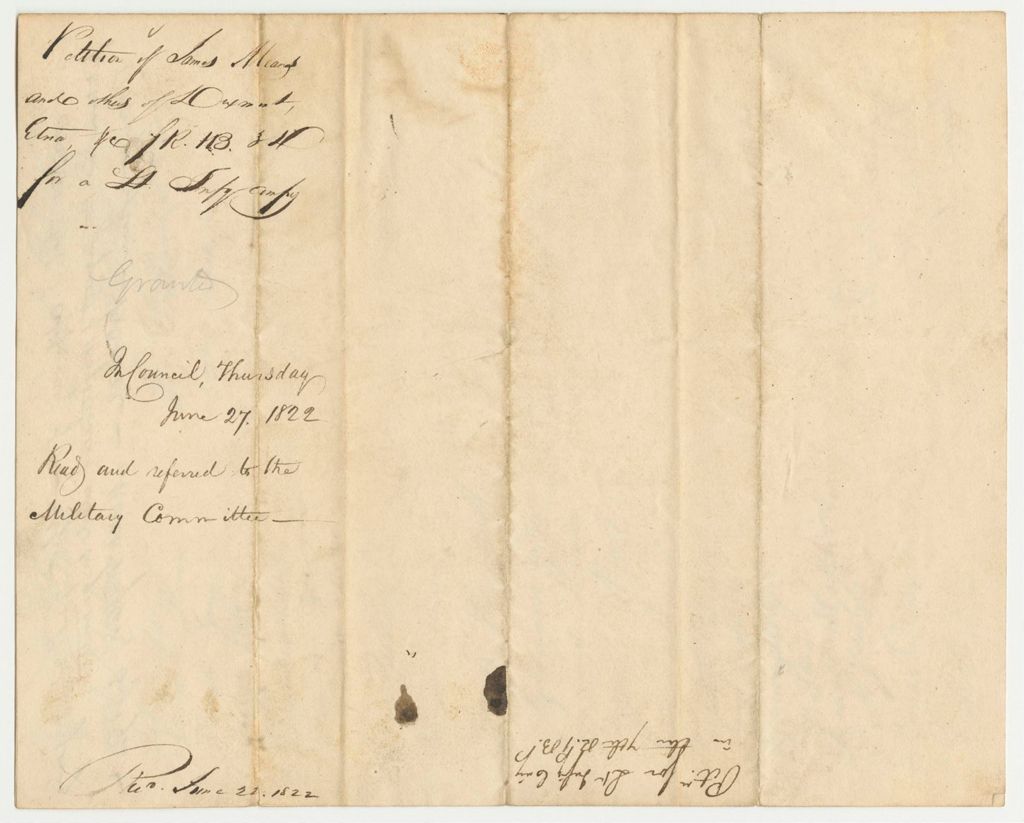 Petition of James Mears
and others of Dixmont,
Etna, &c
for a Lt. Infy compy
Granted
In Council, Thursday
June 27. 1822
Read and referred to the
Military Committee —
Recd. June 22. 1822
Pet.n for Lt Infy Comy
in the 7th R.